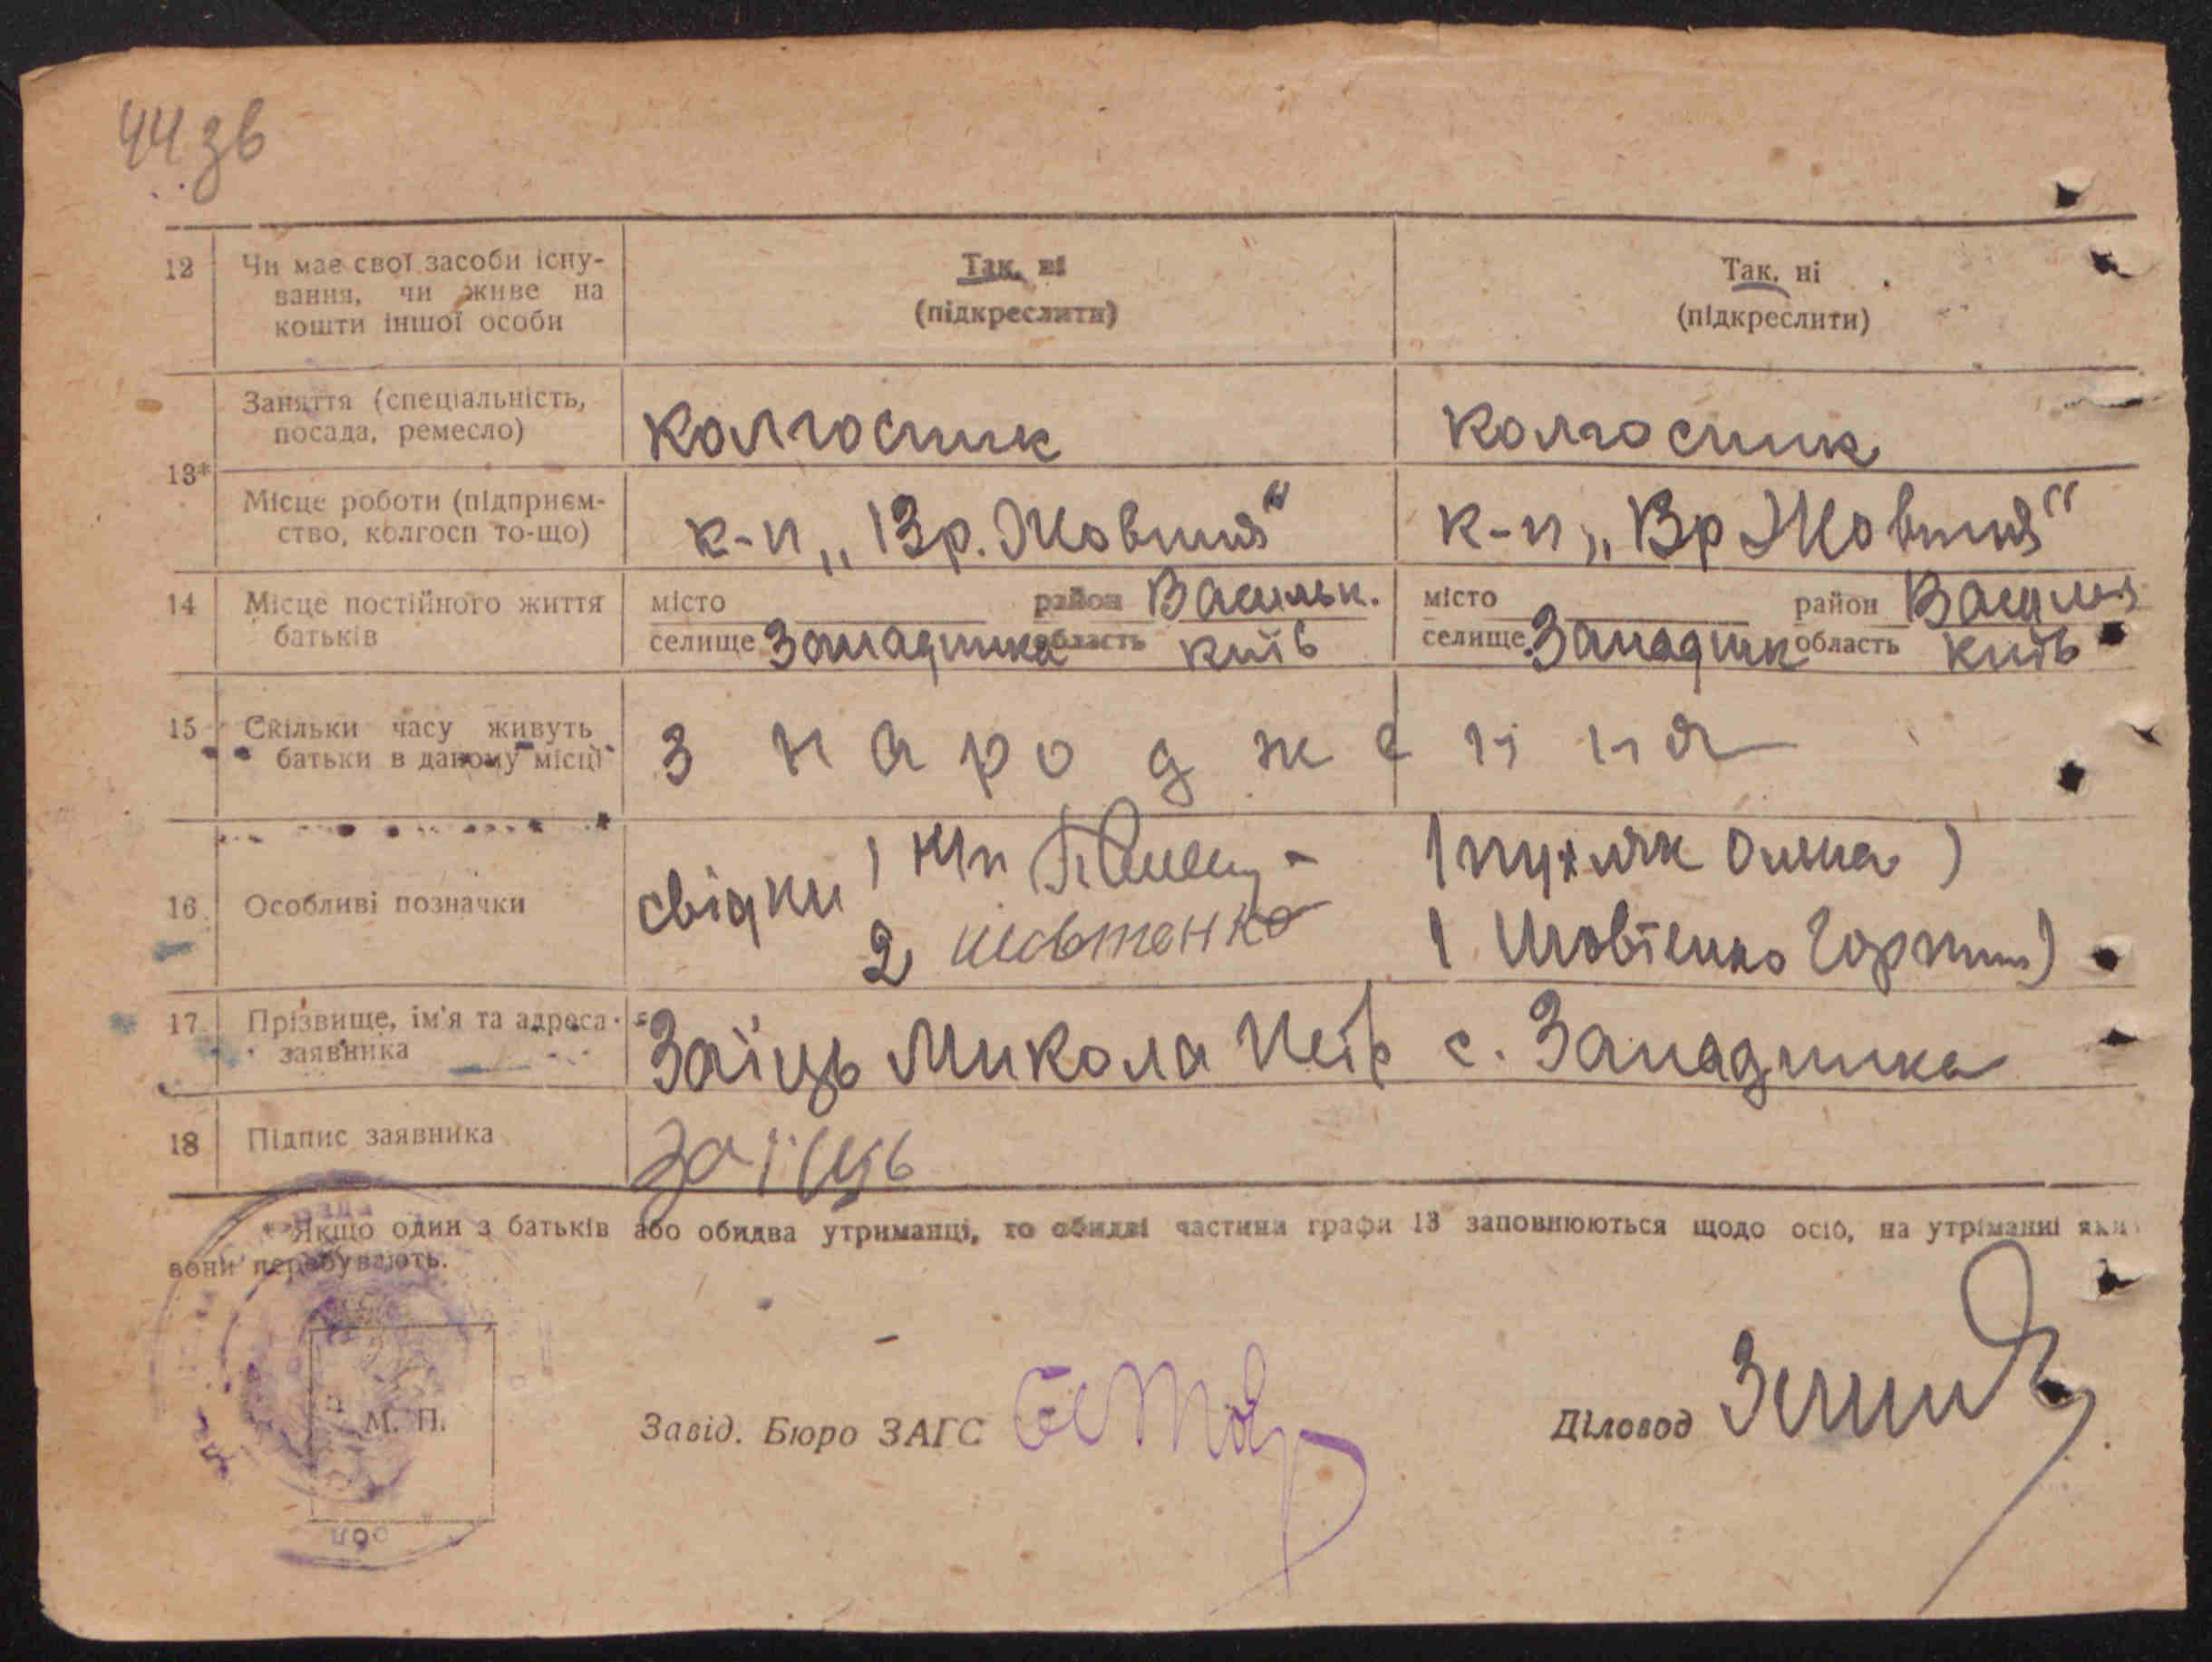 44 зв
12 Чи має свої засоби існу- Так, ні Так, ні
вання, чи живе на (підкреслити) (підкреслити)
кошти іншої особи
13* Заняття (спеціальність, колгосник колгосник
посада, ремесло)
Місце роботи (підприєм- к-п „Вр. Жовтня“ к-п „Вр Жовтня“
ство, колгосп то-що)
14 Місце постійного життя місто район Васильк. місто район
батьків селище Западинка область Київ селище Западинк область Київ
15 Скільки часу живуть з народження
батьки в даному місці
16 Особливі позначки свідки 1 (пухляк Ольга)
2 шовтенко Шовтенко
17 Прізвище, ім'я та адреса Заїць Микола с. Западинка
заявника
18 Підпис заявника заїць
* Якщо один з батьків або обидва утриманці, то обидві частини графи 13 заповнюються щодо осіб, на утриманні яки
вони перебувають.
М. П.
Завід. Бюро ЗАГС Діловод
обл